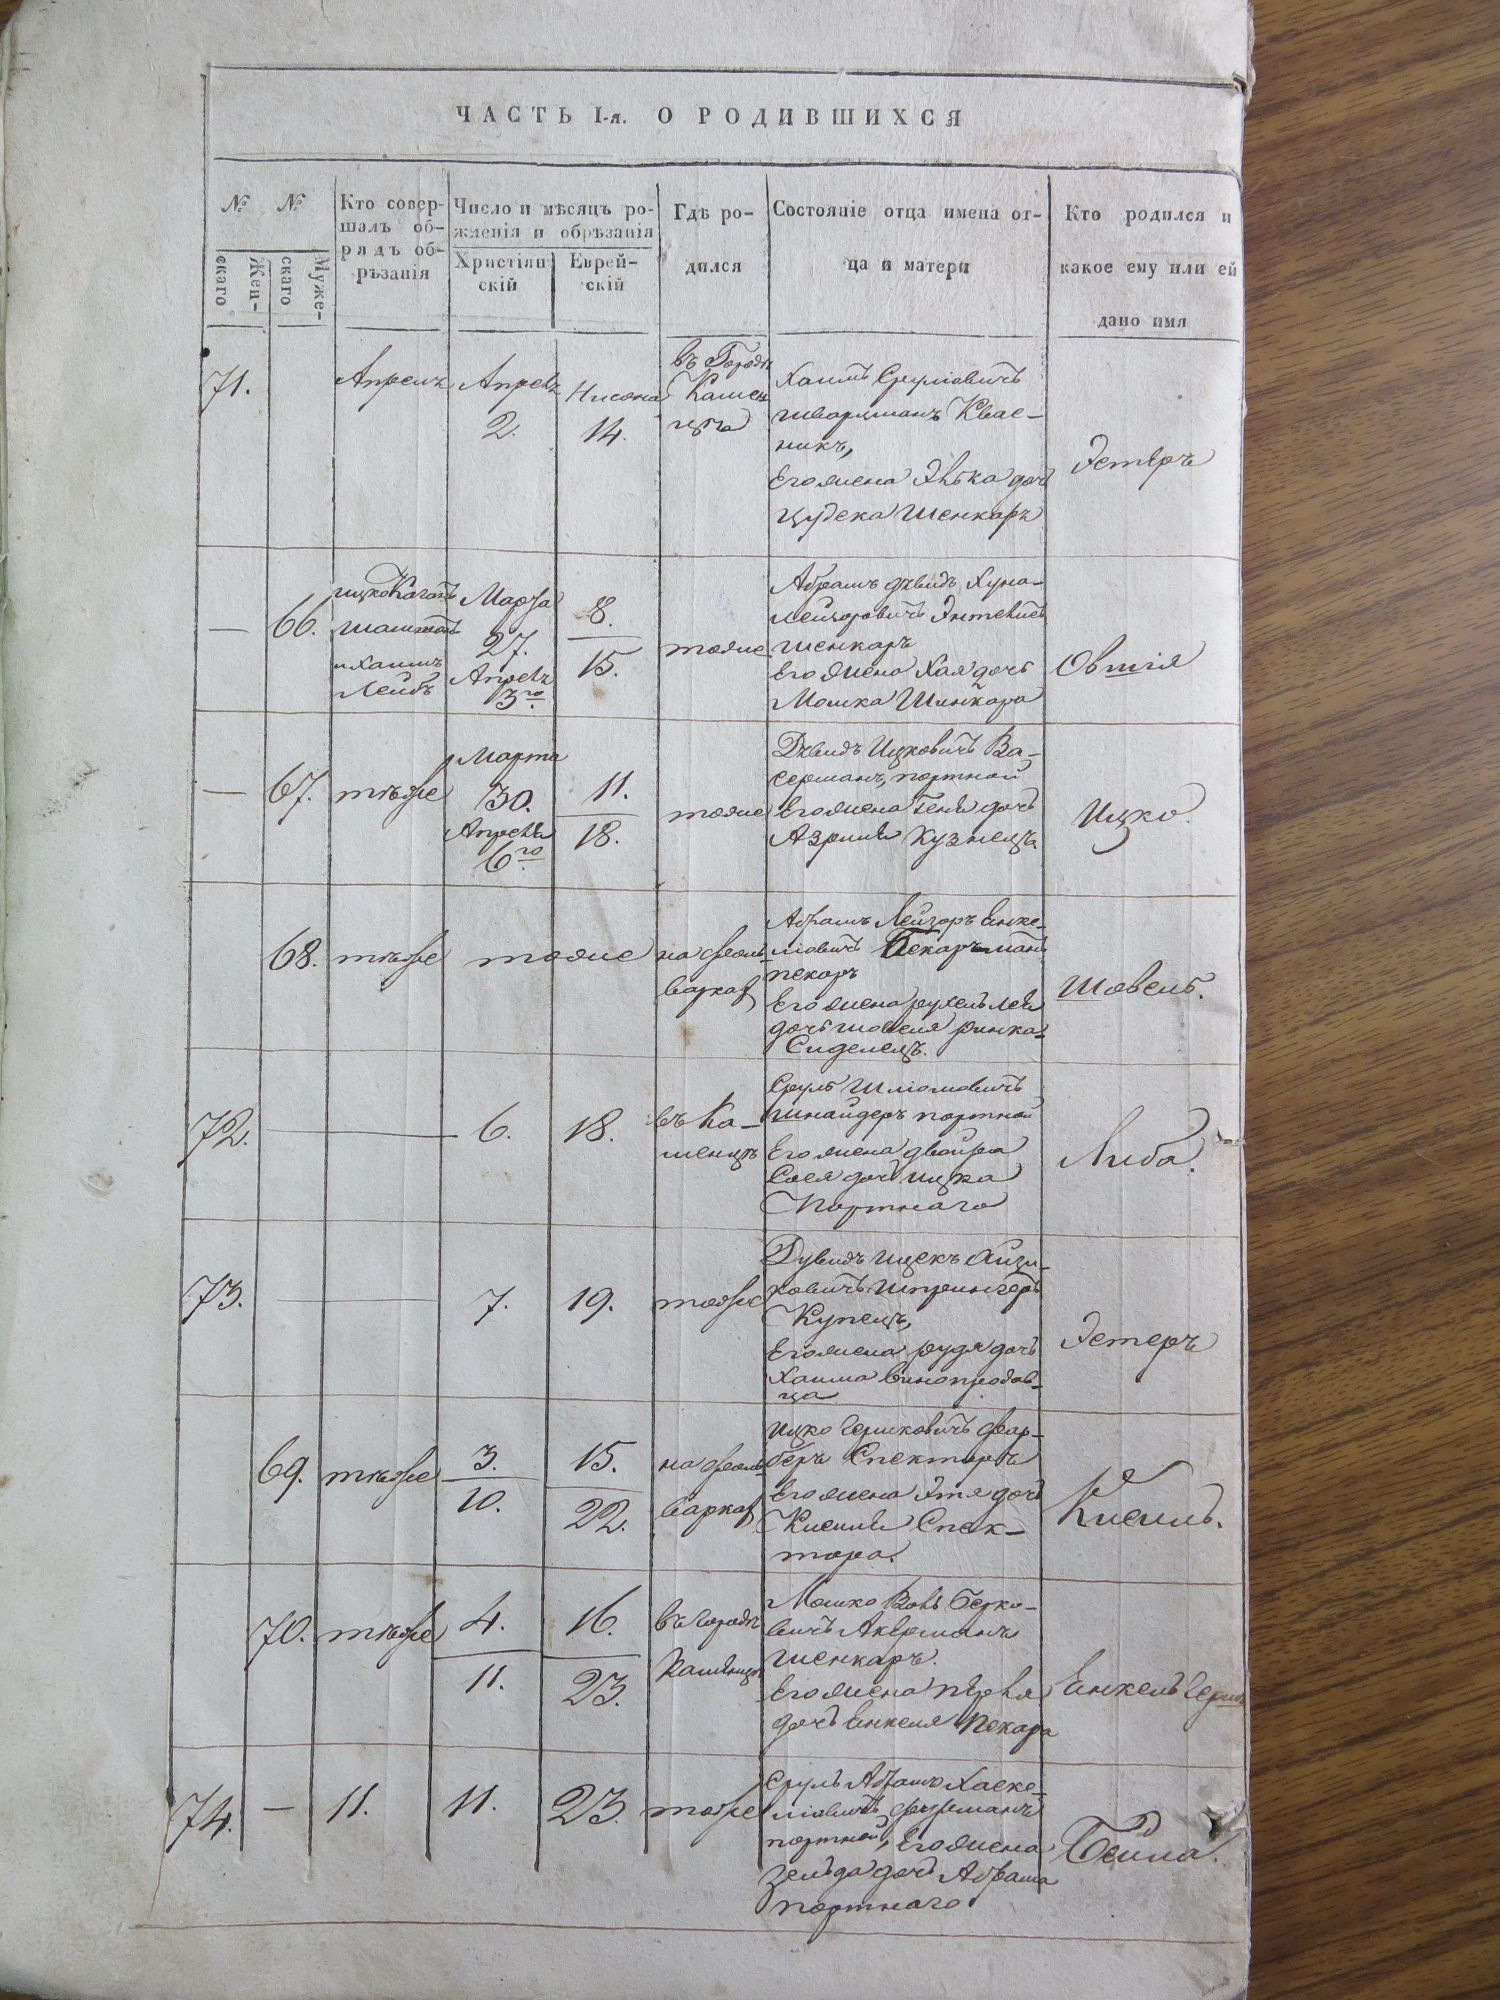 ЧАСТЬ I-я. О РОДИВШИХСЯ
№
Жен-
скаго
№
Муже-
скаго
Кто совер-
шалъ об-
рядъ об-
рѣзанія
Число и мѣсяцъ ро-
жденія и обрѣзанія
Христіян-
скій
Еврей-
скій
Гдѣ ро-
дился
Состояніе отца имена от-
ца и матери
Кто родился и
какое ему или ей
дано имя
71.
Апрель
Апрель
2.
Нисона
14.
въ Городѣ
Камен
цѣ
Хаимъ Сруліовичъ
шварцманъ Квас-
никъ,
Его жена дочь
шенкаръ
Эстеръ
—
66.
ицко Каганъ
и Хаимъ
Лейбъ
Марта
27.
Апрель
3го
8.
15.
тоже
Абрамъ Хуна-
шенкаръ
Его жена Хая дочь
Мошка Шинкара
Овшія
—
67.
тѣже
Марта
30.
Апреля
6го
11.
18.
тоже
Ицковичъ Ва-
серманъ, портной
Его жена Геня дочь
Кузнеца
Ицко.
68.
тѣже
тоже
на фоль-
варках
Абрамъ Лейзоръ Енке-
ліовичъ Пекарьманъ
пекаръ
Его жена рухель лея
дочь шовеля ринка-
Сиделецъ.
Шовель.
72.
—
—
6.
18.
въ Ка-
менцѣ
Сруль Шліомовичъ
шнайдеръ портной
Его жена двойра
Сося дочь ицка
Портнаго
Либа.
73.
—
—
7.
19.
тоже
Дувидъ ицекъ Айзи-
ковичъ Шпрингеръ
Купецъ,
Его жена рудя дочь
Хаима винопродав-
ца
Эстеръ
69.
тѣже
3.
10.
15.
22.
на фоль
варках
Ицко Гершковичъ фар-
беръ Спекторъ
Его жена Этя дочь
Кисиля Спек-
тора.
Кисиль.
70.
тѣже
4.
11.
16.
23.
въ городѣ
Каменцѣ
Мошко Вовь Берко-
вичъ Акерманъ
шенкаръ.
Его жена перля
дочь Енкеля Пекара
Енкель Герш
74.
—
11.
11.
23
тоже
Сруль Абрамъ Хаске-
ліовичъ фурманъ
портной, Его жена
зельда дочь Абрама
портнаго
Бейла.